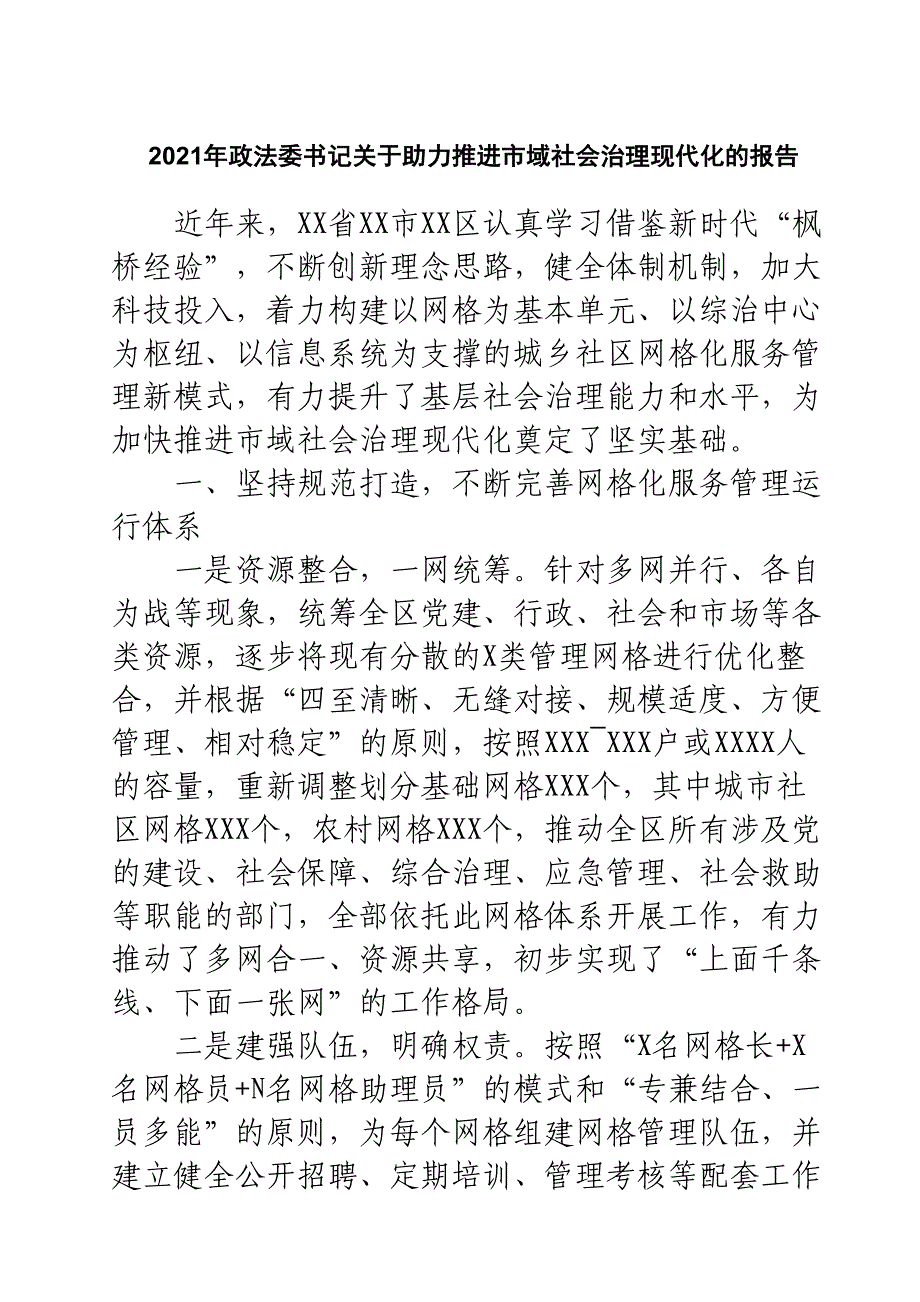 2021年政法委书记关于助力推进市域社会治理现代化的报告
近年来，XX省XX市XX区认真学习借鉴新时代“枫
桥经验”，不断创新理念思路，健全体制机制，加大
科技投入，着力构建以网格为基本单元、以综治中心
为枢纽、以信息系统为支撑的城乡社区网格化服务管
理新模式，有力提升了基层社会治理能力和水平，为
加快推进市域社会治理现代化奠定了坚实基础。
一、坚持规范打造，不断完善网格化服务管理运
行体系
一是资源整合，一网统筹。针对多网并行、各自
为战等现象，统筹全区党建、行政、社会和市场等各
类资源，逐步将现有分散的X类管理网格进行优化整
合，并根据“四至清晰、无缝对接、规模适度、方便
管理、相对稳定”的原则，按照XXX¯XXX户或XXXX人
的容量，重新调整划分基础网格XXX个，其中城市社
区网格XXX个，农村网格XXX个，推动全区所有涉及党
的建设、社会保障、综合治理、应急管理、社会救助
等职能的部门，全部依托此网格体系开展工作，有力
推动了多网合一、资源共享，初步实现了“上面千条
线、下面一张网”的工作格局。
二是建强队伍，明确权责。按照“X名网格长+X
名网格员+N名网格助理员”的模式和“专兼结合、一
员多能”的原则，为每个网格组建网格管理队伍，并
建立健全公开招聘、定期培训、管理考核等配套工作